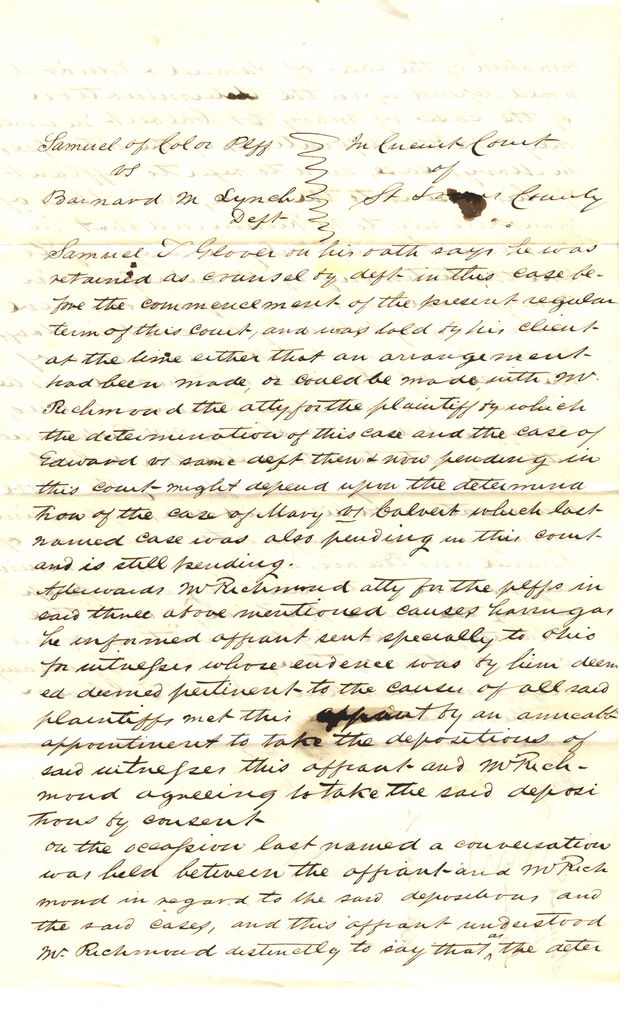 Samuel of Color Plff
vs
Barnard M Lynch
Deft
In Circuit Court
of
St Louis County
Samuel T Glover on his oath says he was
retained as counsel by deft in this case be-
fore the commencement of the present regular
term of this court, and was told by his client
at the time either that an arrangement
had been made, or could be made with Mr.
Richmond the atty for the plaintiff by which
the determination of this case and the case of
Edward vs same deft then & now pending in
this court might depend upon the determina
tion of the case of Mary vs Calvert which last
named case was also pending in this court
and is still pending.
Afterwards Mr Richmond atty for the plffs in
said three above mentioned causes having as
he informed affiant sent specially to Ohio
for witnesses whose evidence was by him deem
ed deemed pertinent to the causes of all said
plaintiffs met this affiant by an amicable
appointment to take the depositions of
said witnesses this affiant and Mr Rich-
mond agreeing to take the said deposi
tions by consent
On the occassion last named a conversation
was held between the affiant and Mr Rich
mond in regard to the said depositions and
the said cases, and this affiant understood
Mr. Richmond distinctly to say that as the deter